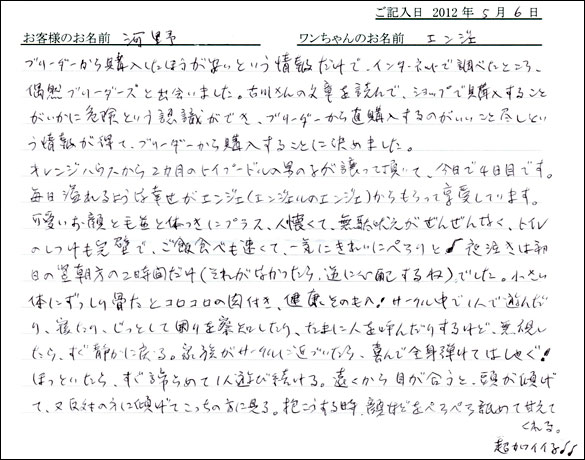 ご記入日 2012 年 5 月 6 日
お客様のお名前 河野 ワンちゃんのお名前 エンジェ
ブリーダーから購入したほうが安いという情報だけで、インターネットで調べたところ、
偶然ブリーダーズと出会いました。古川さんの文章を読んで、ショップで購入すること
がいかに危険という認識ができ、ブリーダーから直購入するのがいいこと尽しとい
う情報が得て、ブリーダーから購入することに決めました。
オレンジハウスから2カ月のトイプードルの男の子が譲って頂いて、今日で4日目です。
毎日溢れるような幸せがエンジェ(エンジェルのエンジェ)からもらって享受しています。
可愛いお顔と毛並と体つきにプラス、人懐くて、無駄吠えがぜんぜんなく、トイレ
のしつけも完璧で、ご飯食べも速くて、一気にきれいにぺろりと♪ 夜泣きは初
日の翌朝方の2時間だけ(それがなかったら、逆に心配するね)でした。小さい
体にずっしり骨太とコロコロの肉付き、健康そのもの! サークル中で1人で遊んだ
り、寝たり、じっとして周りを察知したり、たまに人を呼んだりするけど、無視し
たら、すぐ静かに戻る。家族がサークルに近づいたら、喜んで全身弾けてはしゃぐ!
ほっといたら、すぐ諦らめて1人遊び続ける。遠くから目が合うと、頭が傾げ
て、又反対の方に傾げてこっちの方に見る。抱こうする時、顔などをぺろぺろ舐めて甘えて
くれる。
超カワイイよ♪♪